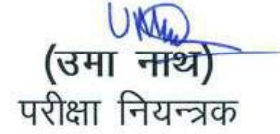 (उमा नाथ)
परीक्षा नियन्त्रक